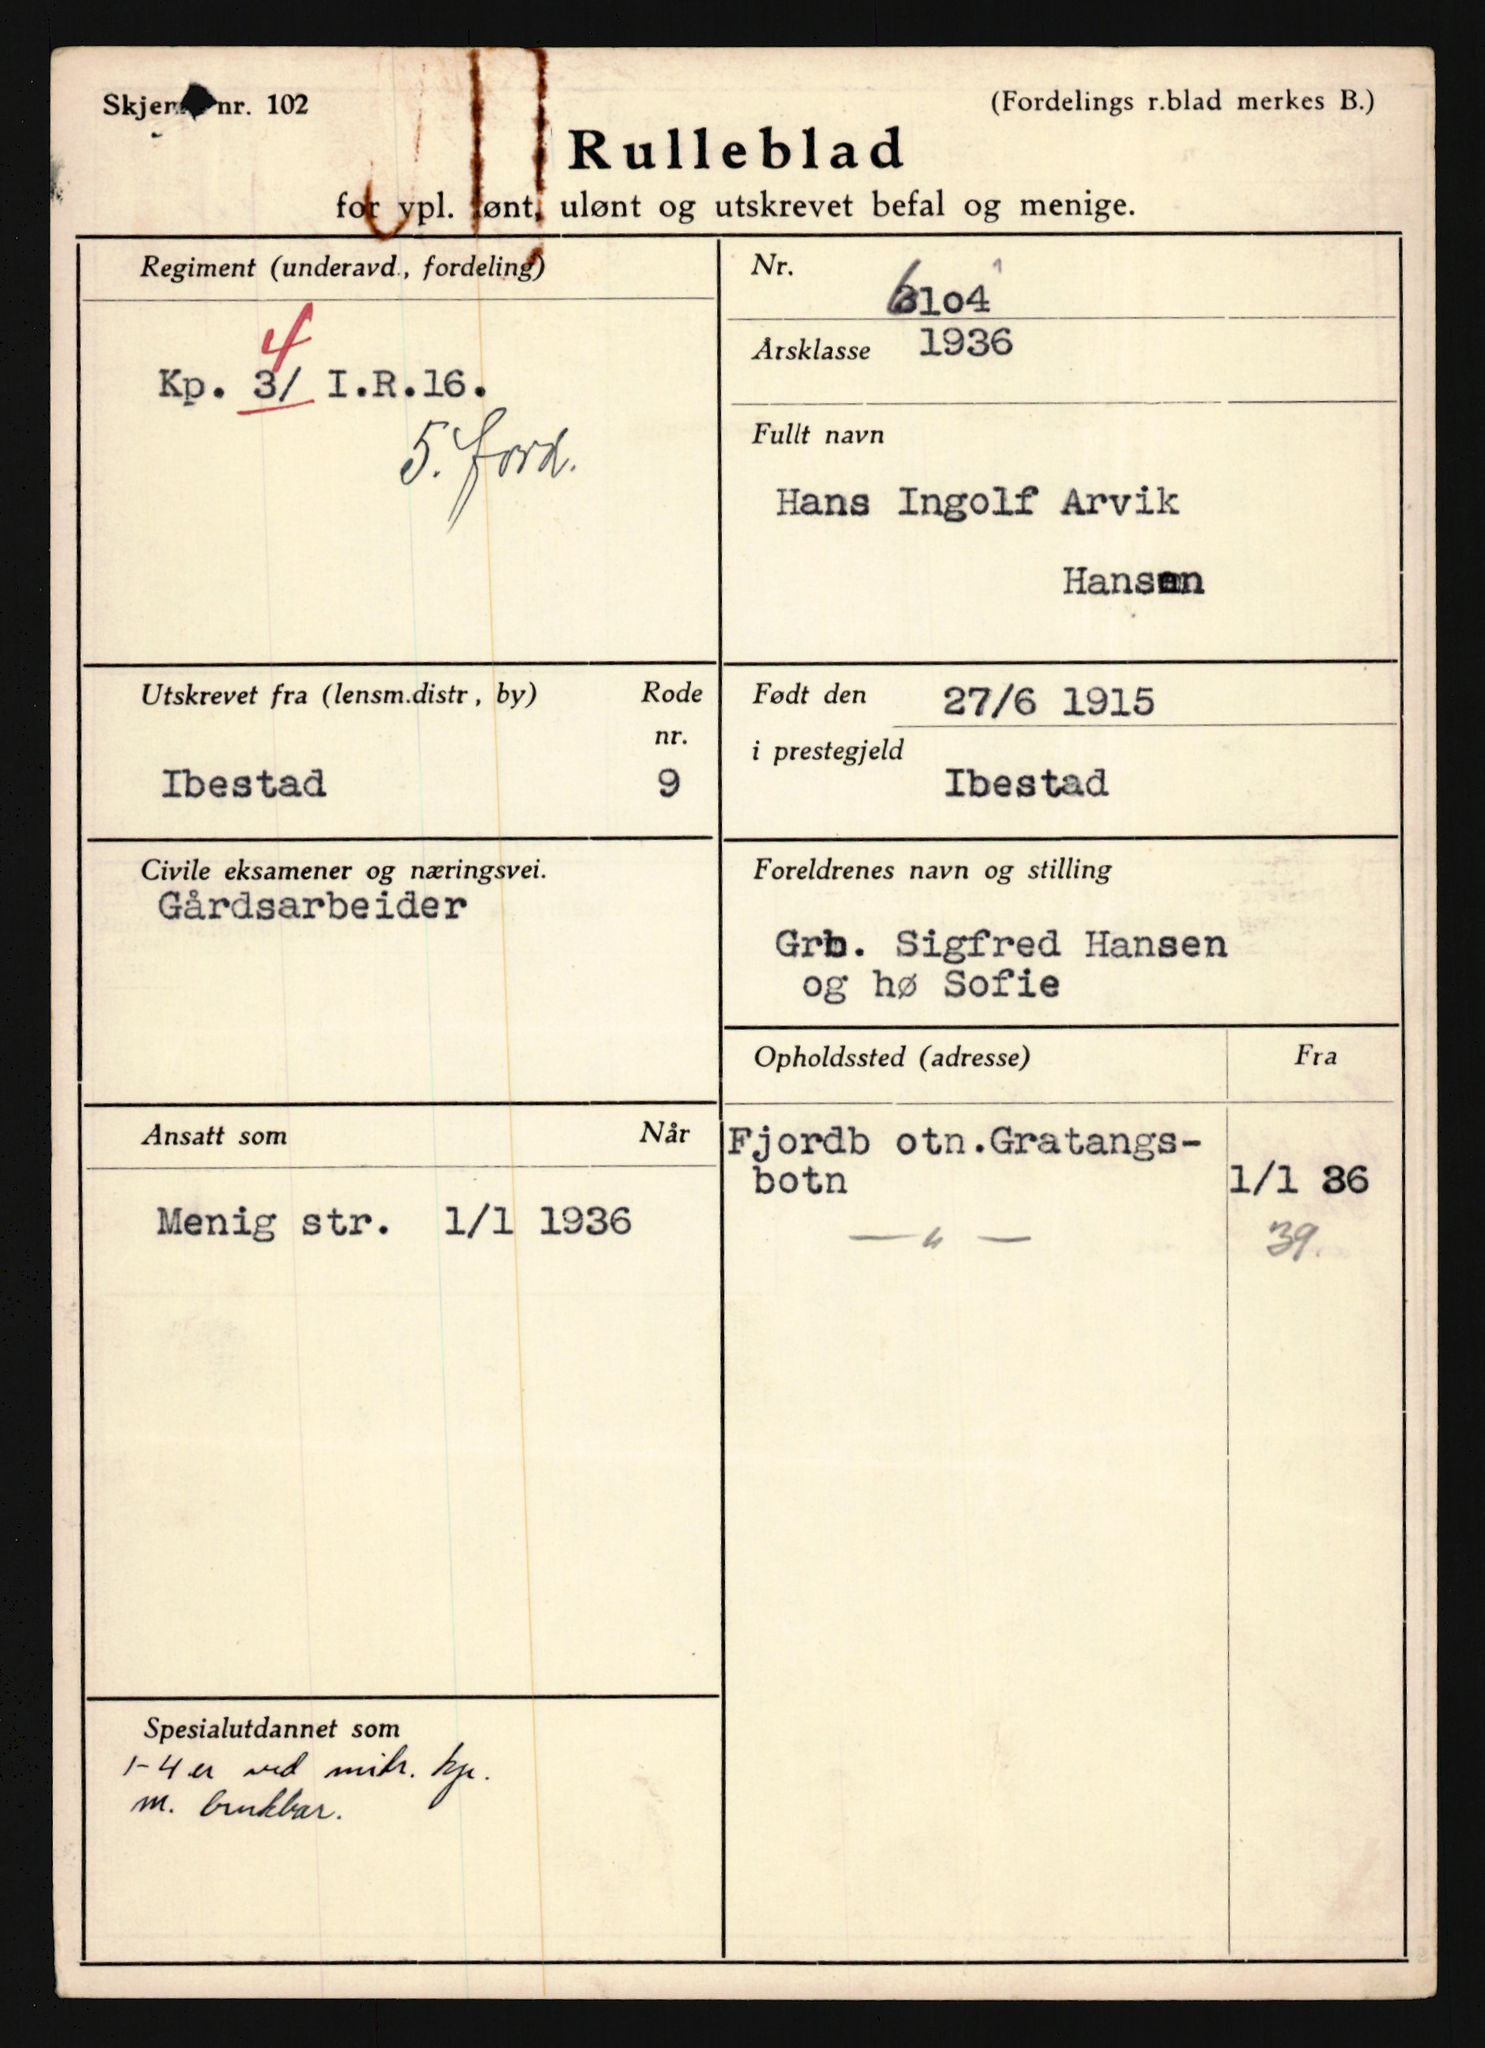 Skjema nr. 102
(Fordelings r.blad merkes B.)
Rulleblad
for vpl. lønt, ulønt og utskrevet befal og menige.
Regiment (underavd., fordeling)
4
Kp. 3/ I.R.16.
5. ford.
Nr.
6104
Årsklasse 1936
Fullt navn
Hans Ingolf Arvik
Hansen
Utskrevet fra (lensm.distr, by)
Rode
nr.
Ibestad
9
Født den 27/6 1915
i prestegjeld
Ibestad
Civile eksamener og næringsvei.
Gårdsarbeider
Foreldrenes navn og stilling
Grb. Sigfred Hansen
og hø Sofie
Opholdssted (adresse)
Fra
Fjordb otn.Gratangs-
botn
1/1 36
— " —
39.
Ansatt som
Når
Menig str. 1/1 1936
Spesialutdannet som
1-4 er ved mitr. kp.
m. brukbar.